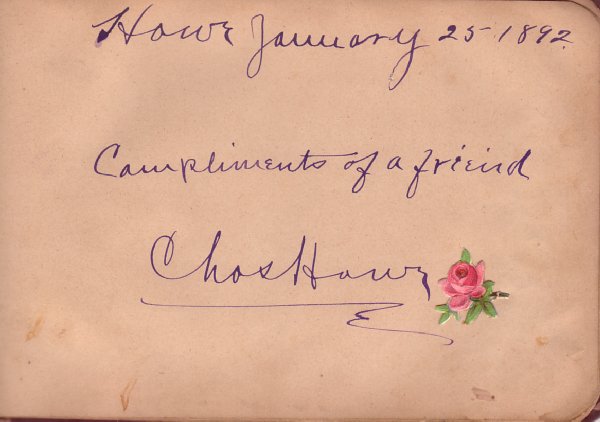 Howe January 25 1892
Compliments of a friend
Chas Howe